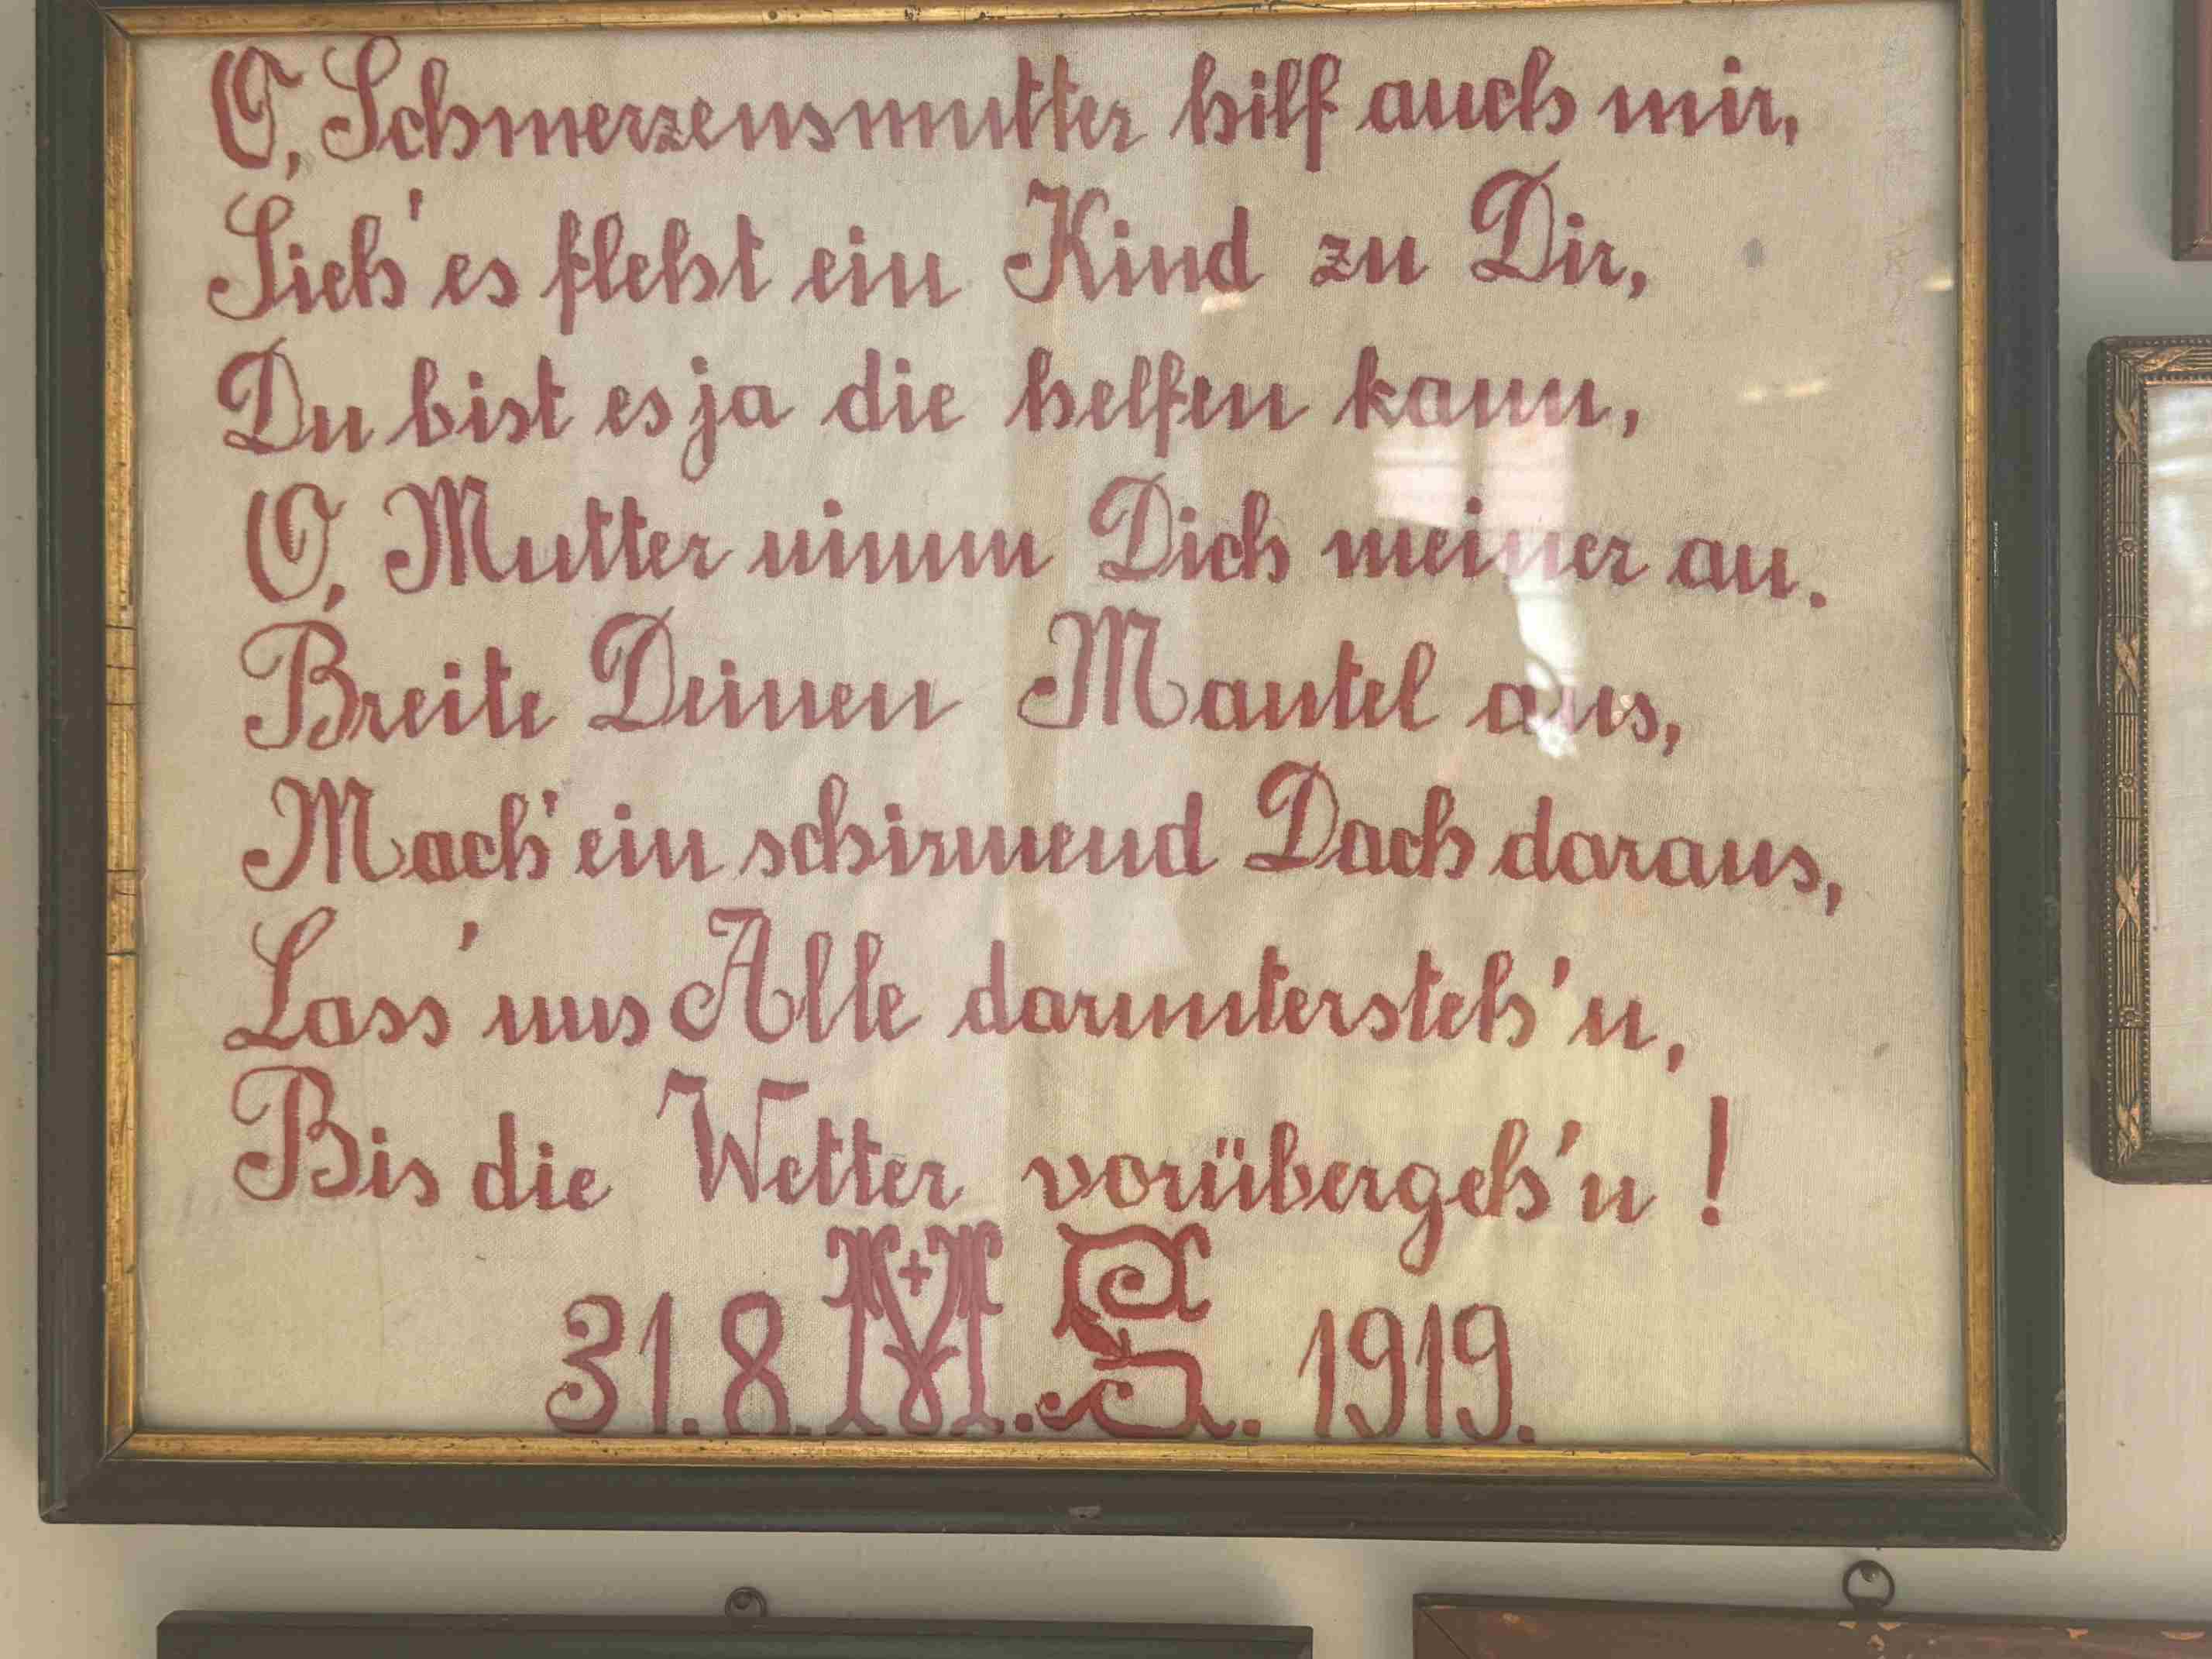 O, Schmerzensmutter hilf auch mir,
Sieh' es fleht ein Kind zu Dir,
Du bist es ja die helfen kann,
O, Mutter nimm Dich meiner an.
Breite Deinen Mantel aus,
Mach' ein schirmend Dach daraus,
Lass' uns Alle daruntersteh'n,
Bis die Wetter vorübergeh'n!
31.8.M.S.1919.